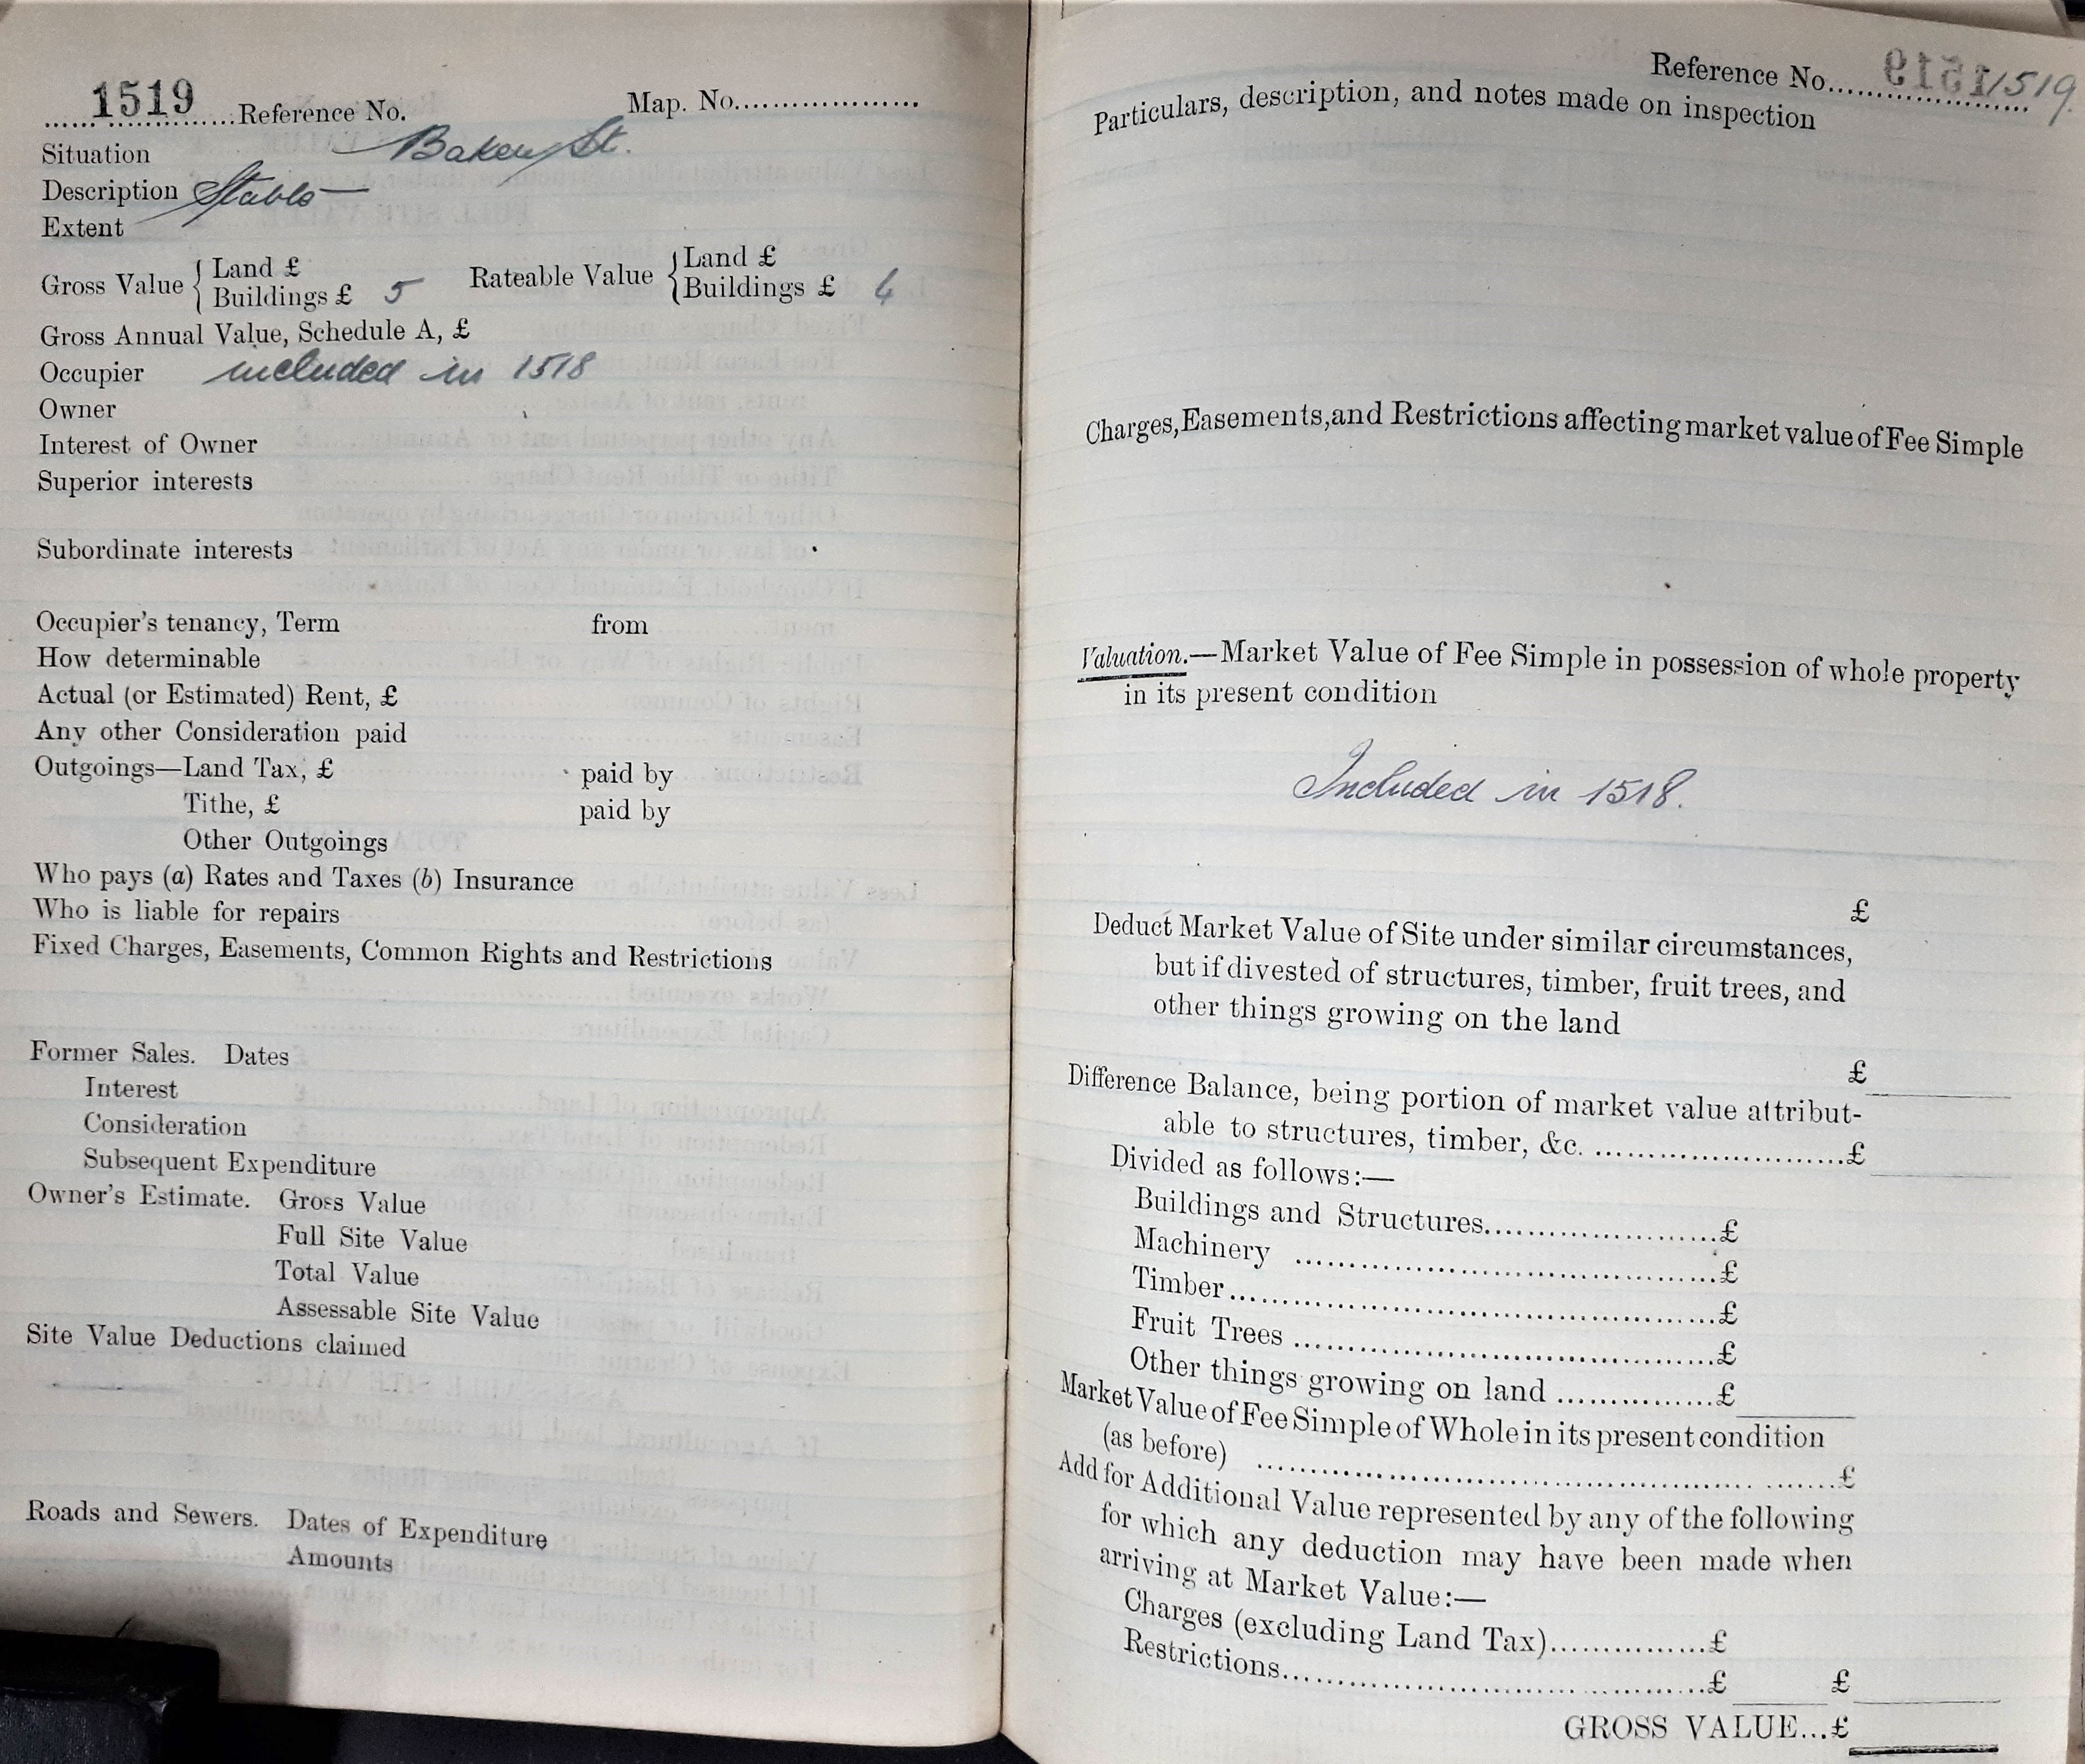 1519 Reference No. Map. No.
Situation Bakery St.
Description Stable
Extent
Gross Value { Land £
Buildings £ 5
Rateable Value { Land £
Buildings £ 4
Gross Annual Value, Schedule A, £
Occupier included in 1518
Owner
Interest of Owner
Superior interests
Subordinate interests
Occupier's tenancy, Term from
How determinable
Actual (or Estimated) Rent, £
Any other Consideration paid
Outgoings—Land Tax, £ paid by
Tithe, £ paid by
Other Outgoings
Who pays (a) Rates and Taxes (b) Insurance
Who is liable for repairs
Fixed Charges, Easements, Common Rights and Restrictions
Former Sales. Dates
Interest
Consideration
Subsequent Expenditure
Owner's Estimate. Gross Value
Full Site Value
Total Value
Assessable Site Value
Site Value Deductions claimed
Roads and Sewers. Dates of Expenditure
Amounts
Reference No. 1519
Particulars, description, and notes made on inspection
Charges, Easements, and Restrictions affecting market value of Fee Simple
Valuation.—Market Value of Fee Simple in possession of whole property
in its present condition
Included in 1518.
£
Deduct Market Value of Site under similar circumstances,
but if divested of structures, timber, fruit trees, and
other things growing on the land
£
Difference Balance, being portion of market value attribut-
able to structures, timber, &c. £
Divided as follows:—
Buildings and Structures £
Machinery £
Timber £
Fruit Trees £
Other things growing on land £
Market Value of Fee Simple of Whole in its present condition
(as before) £
Add for Additional Value represented by any of the following
for which any deduction may have been made when
arriving at Market Value:—
Charges (excluding Land Tax) £
Restrictions £ £
GROSS VALUE...£